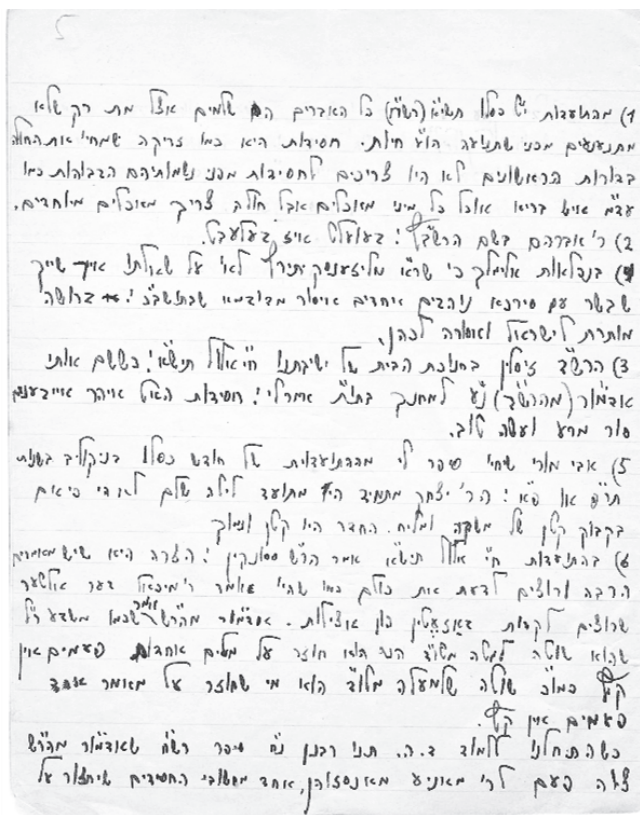 1) מהתועדות י"ט כסלו תשי"א (רש"ח) כל האברים הם שלמים אצל מת רק שלא
מתנענעים מפני שתנועה הו"ע חיות. חסידות היא כמו זריקה שמחי' את החולה
בדורות הראשונים לא היו צריכים לחסידות מפני נשמותיהם הגבוהות כמו
עד"מ איש בריא אוכל כל מיני מאכלים אבל חולה צריך מאכלים מיוחדים.
2) ר' אברהם בשם הרש"ב
בנפלאות אלימלך כי שר"א מליזענסק תירץ לא' על שאלתו איך שייך
שבשר עם סירכא נוהגים איזהים איסור
מותרת לישראל ואסורה לכהן.
3) הרש"ד זיסלין בחנוכת הבית של ישיבתנו ח"י אלול תש"א: כששם אותי
אדמו"ר (מהרש"ב) נ"ע למחנך בתו"ת אמר לי: חסידות האט אויהר
סור מרע ועשה טוב.
5) אבי מורי שיחי' סיפר לי מההתועדות של חודש כסלו בניקולייב בשנות
תר"פ או פ"א: הר' יצחק מתמיד הי' מתועד לילה שלם
בקבוק קטן של משקה ומליח. החדר היו קטן ונמוך
6) בהתועדות ח"י אלול תש"א אמר הר"ש סטסונקין: הצרה היא שיש מאמרים
הרבה ורוצים לדעת את כולם כמו שהי' אומר ר' מיכאל דער אלטער
שרוצים לקרות כון אצילות. אדמו"ר מהר"ש אמר שכמו משבע
שהוא שוטה למטה הנה הוא חוזר על מלים אחדות פעמים אין
קץ כמו"כ שוטה שלמעלה הוא מי שחוזר על מאמר אחד
פעמים אין קץ.
כשהתחלנו ללמוד ד.ה. תנו רבנן נ"ח סיפר רש"ח שאדמו"ר מהר"ש
צוה פעם לר' מאניע מאנסזאהן, אחד מחשובי החסידים שיחזור על